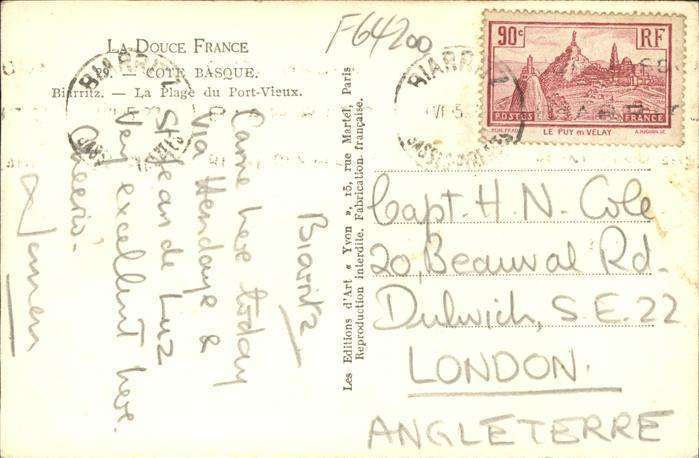 F64200
LA DOUCE FRANCE
29. — COTE BASQUE.
Biarritz. — La Plage du Port-Vieux.
BIARRITZ
BIARRITZ
BASSES-PYRENEES
90c
RF
POSTES FRANCE
LE PUY EN VELAY
Biarritz
Came here today
Via Hendaye &
St Jean de Luz
Very excellent here.
Cheerio.
Les Editions d'Art « Yvon », 15, rue Martel, Paris
Reproduction interdite. Fabrication française.
Capt. H. N. Cole
20, Beauval Rd.
Dulwich, S.E. 22
LONDON.
ANGLETERRE